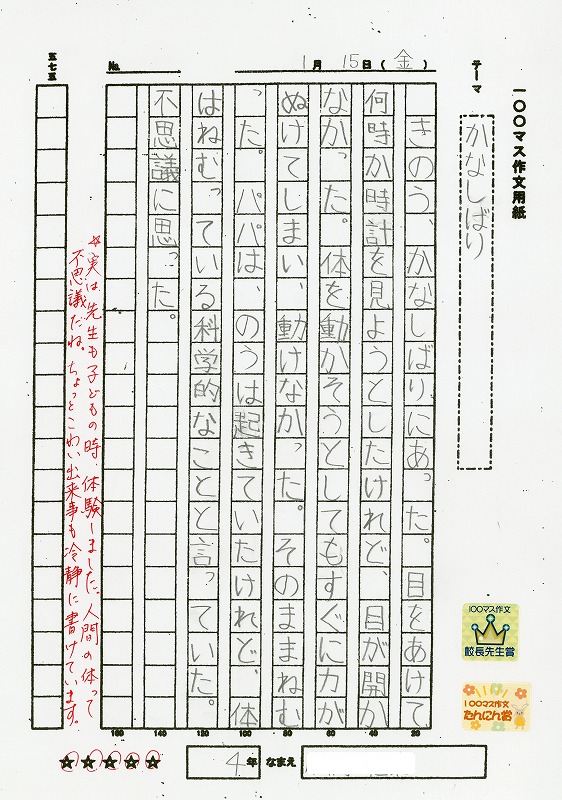 一〇〇マス作文用紙
テーマ
かなしばり
1月15日(金)
No.
きのう、かなしばりにあった。目をあけて
何時か時計を見ようとしたけれど、目が開か
なかった。体を動かそうとしてもすぐに力が
ぬけてしまい、動けなかった。そのままねむ
った。パパは、のうは起きていたけれど、体
はねむっている科学的なことと言っていた。
不思議に思った。
五七五
☆実は、先生も子どもの時、体験しました。人間の体って
不思議だね。ちょっとこわい出来事も冷静に書けています。
20
40
60
80
100
120
140
160
100マス作文
校長先生賞
100マス作文
たんにん賞
4年 なまえ